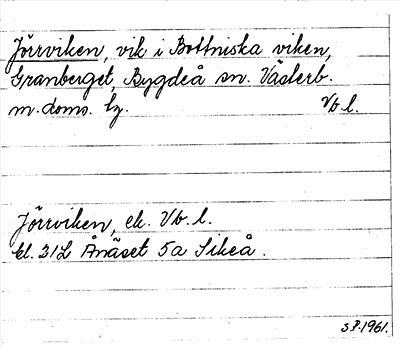 Jörrviken, vik i Bottniska viken,
Granberget, Bygdeå sn. Västerb.
m. doms. hg. Vb. l.
Jörrviken, ek. Vb. l.
bl. 21L Ånäset 5a Sikeå.
S.P. 1961.